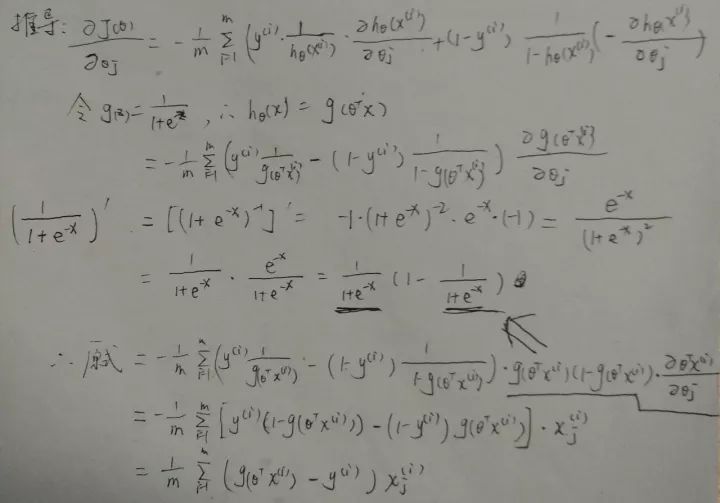 推导: ∂J(θ)/∂θj = -1/m Σ_{i=1}^{m} (y^(i) · 1/hθ(x^(i)) · ∂hθ(x^(i))/∂θj + (1-y^(i)) 1/(1-hθ(x^(i))) (-∂hθ(x^(i))/∂θj)
令 g(z) = 1/(1+e^-z), ∴ hθ(x) = g(θ^T x)
= -1/m Σ_{i=1}^{m} (y^(i) 1/g(θ^T x^(i)) - (1-y^(i)) 1/(1-g(θ^T x^(i)))) ∂g(θ^T x^(i))/∂θj
(1/(1+e^-x))' = [(1+e^-x)^-1]' = -1·(1+e^-x)^-2 · e^-x · (-1) = e^-x/(1+e^-x)^2
= 1/(1+e^-x) · e^-x/(1+e^-x) = 1/(1+e^-x) (1 - 1/(1+e^-x))
∴ 原式 = -1/m Σ_{i=1}^{m} (y^(i) 1/g(θ^T x^(i)) - (1-y^(i)) 1/(1-g(θ^T x^(i)))) · g(θ^T x^(i))(1-g(θ^T x^(i))) · ∂θ^T x^(i)/∂θj
= -1/m Σ_{i=1}^{m} [y^(i)(1-g(θ^T x^(i))) - (1-y^(i)) g(θ^T x^(i))] · xj^(i)
= 1/m Σ_{i=1}^{m} (g(θ^T x^(i)) - y^(i)) xj^(i)